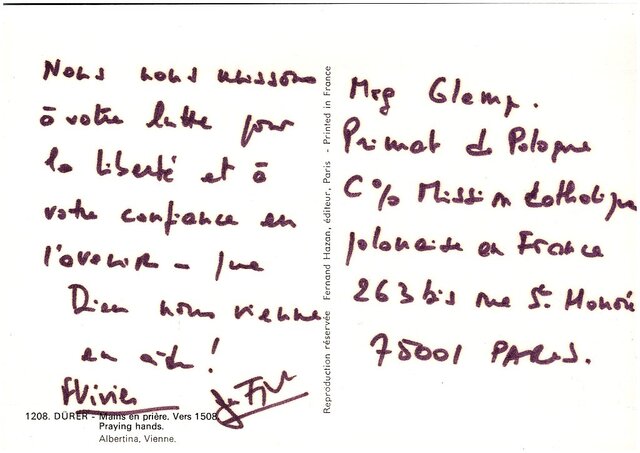 Nous nous unissons
à votre lutte pour
la liberté et à
votre confiance en
l'avenir - que
Dieu nous vienne
en aide !
1208. DÜRER - Mains en prière. Vers 1508.
Praying hands.
Albertina, Vienne.
Reproduction réservée Fernand Hazan, éditeur, Paris - Printed in France
Mgr Glemp.
Primat de Pologne
C% Mission Catholique
polonaise en France
263 bis rue St Honoré
75001 PARIS.